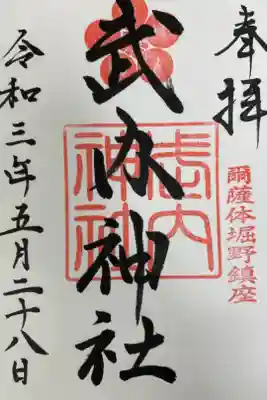 奉拝
爾薩体堀野鎮座
武内神社
武内神社
令和三年五月二十八日